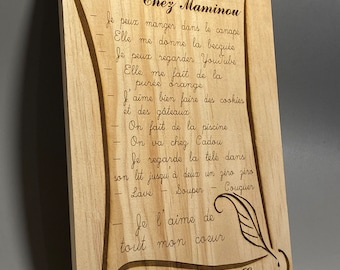 Chez Maminou
- Je peux manger dans le canapé
- Elle me donne la becquée
- Je peux regarder YouTube
- Elle me fait de la
purée orange
- J'aime bien faire des cookies
et des gâteaux
- On fait de la piscine
- On va chez Cadou
- Je regarde la télé dans
son lit jusqu'à deux un zéro zéro
- Lave - Souper - Couquer
- Je l'aime de
tout mon cœur